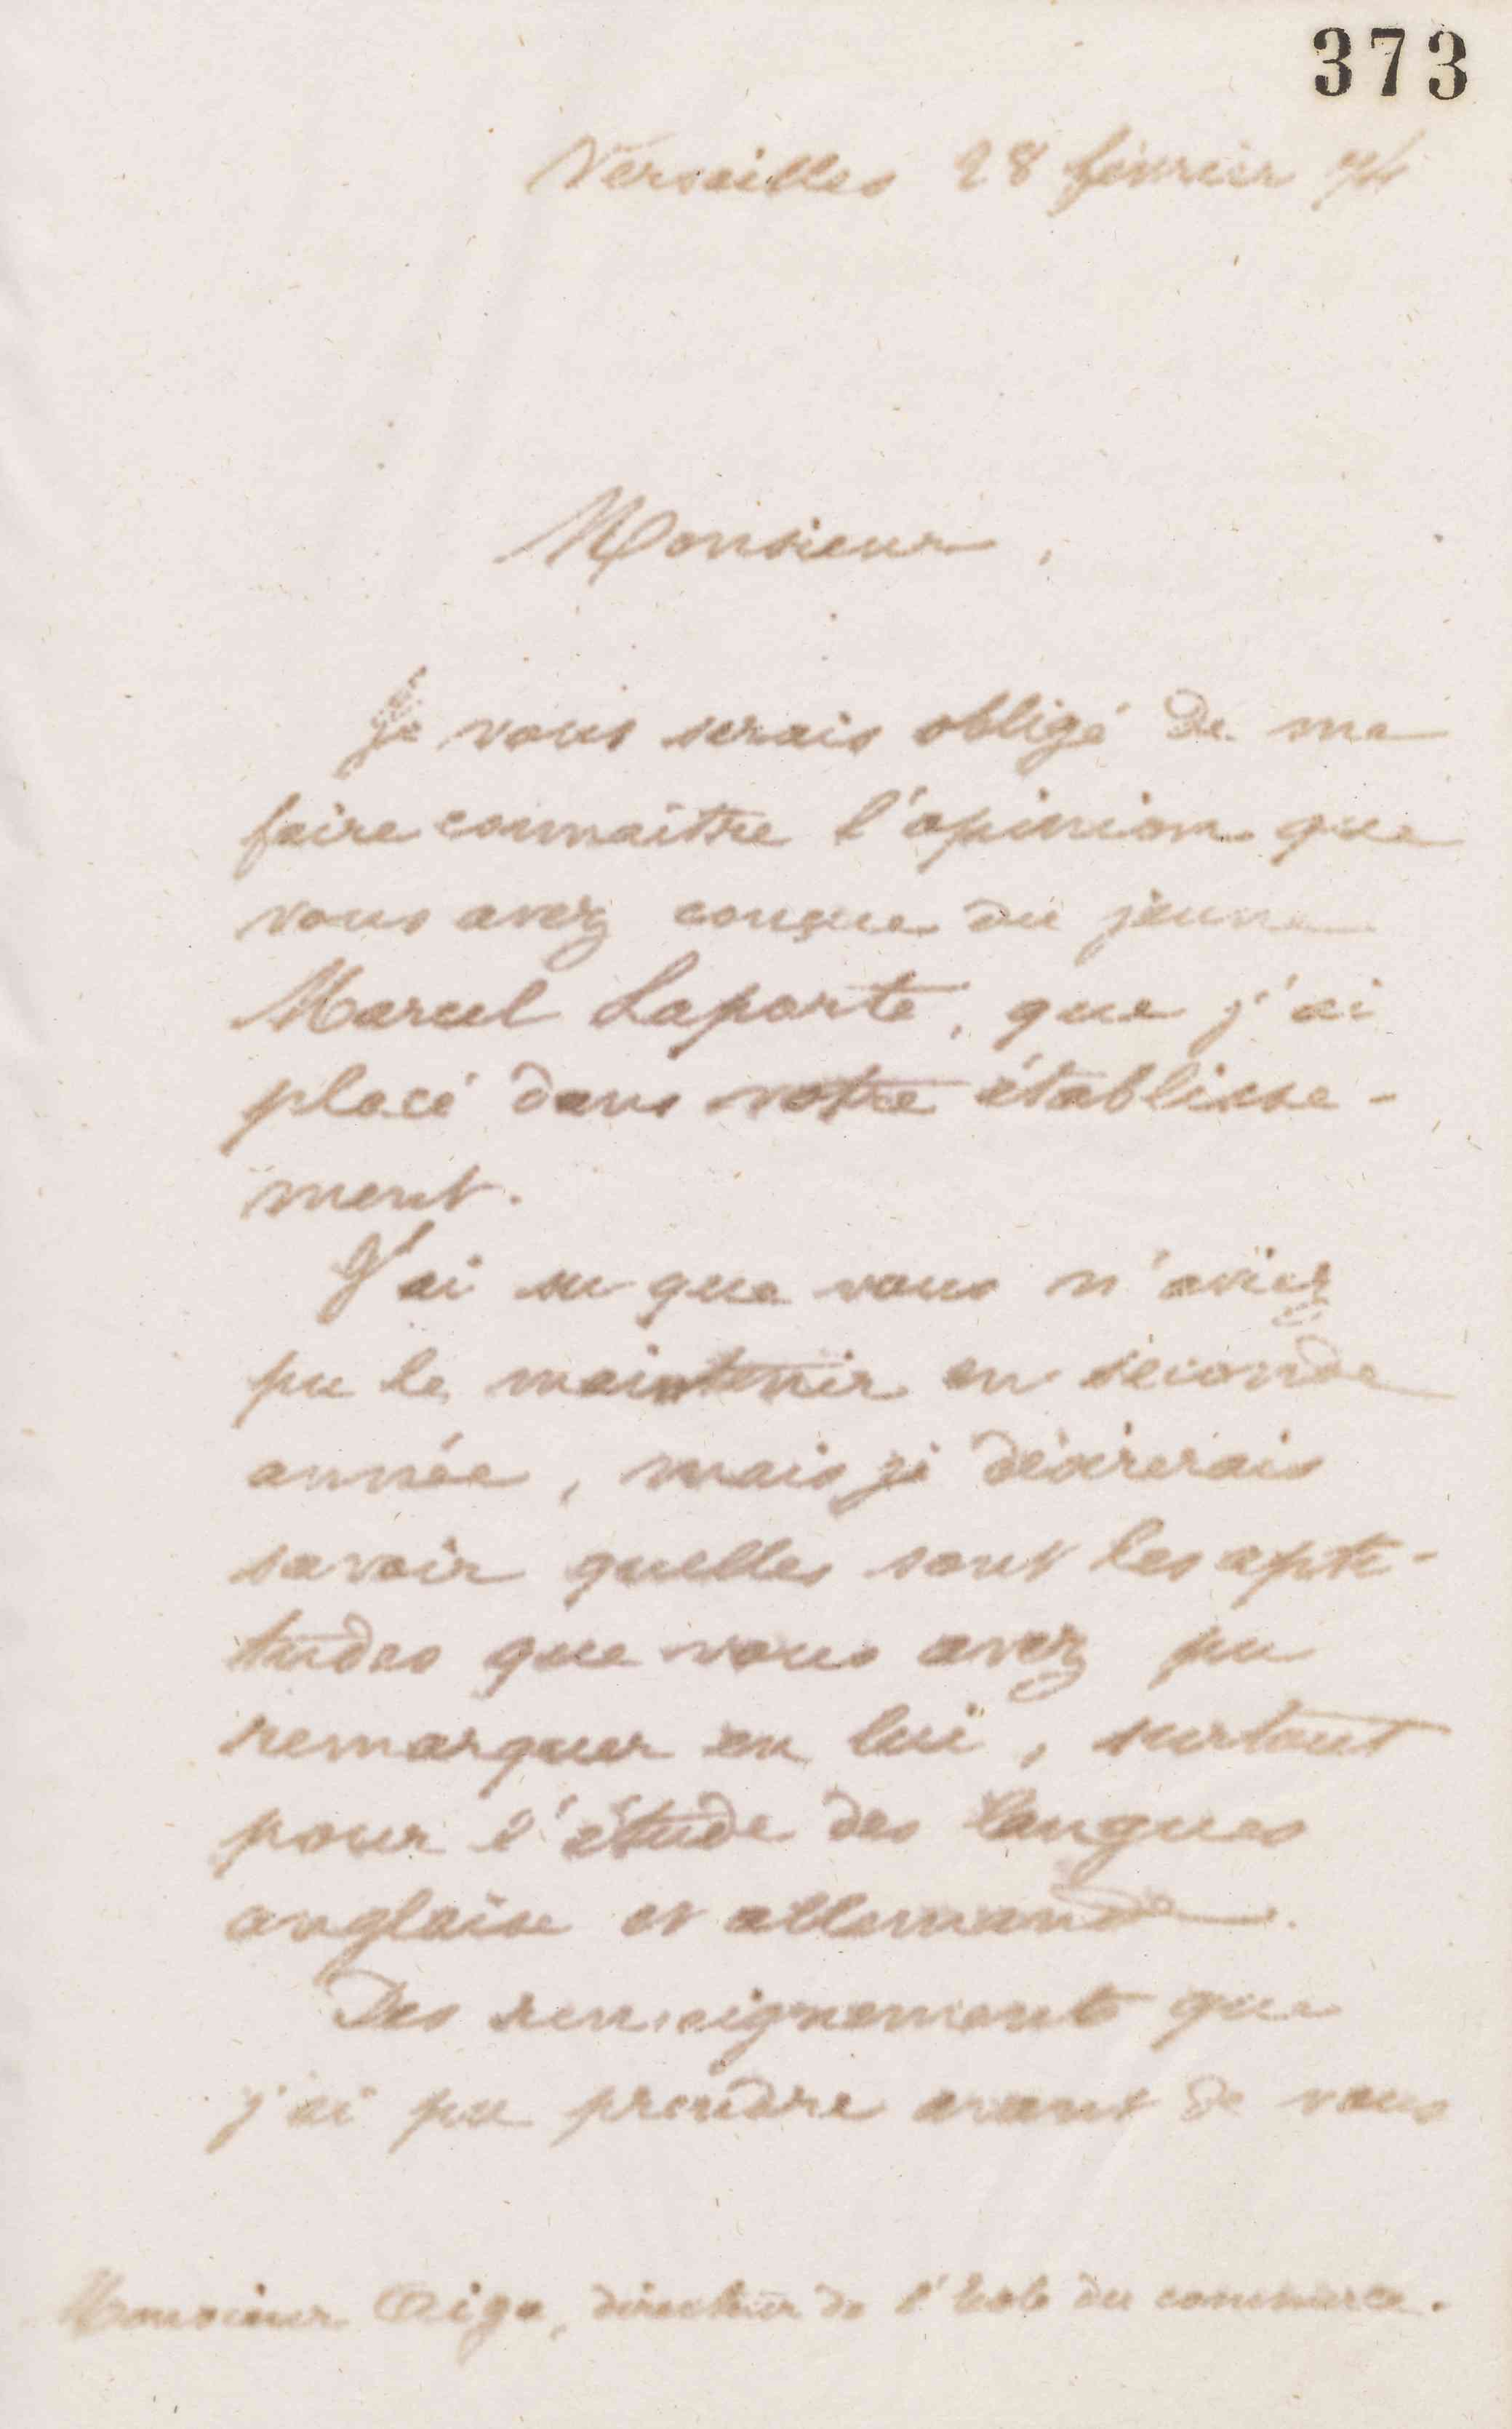 373
Versailles 28 février 94
Monsieur,
Je vous serais obligé de me
faire connaître l'opinion que
vous avez conçue du jeune
Marcel Laporte, que j'ai
placé dans votre établisse-
ment.
J'ai su que vous n'aviez
pu le maintenir en seconde
année, mais je désirerais
savoir quelles sont les apti-
tudes que vous avez pu
remarquer en lui, surtout
pour l'étude des langues
anglaise et allemande.
Des renseignements que
j'ai pu prendre avant de vous
Monsieur directeur de l'école du commerce.